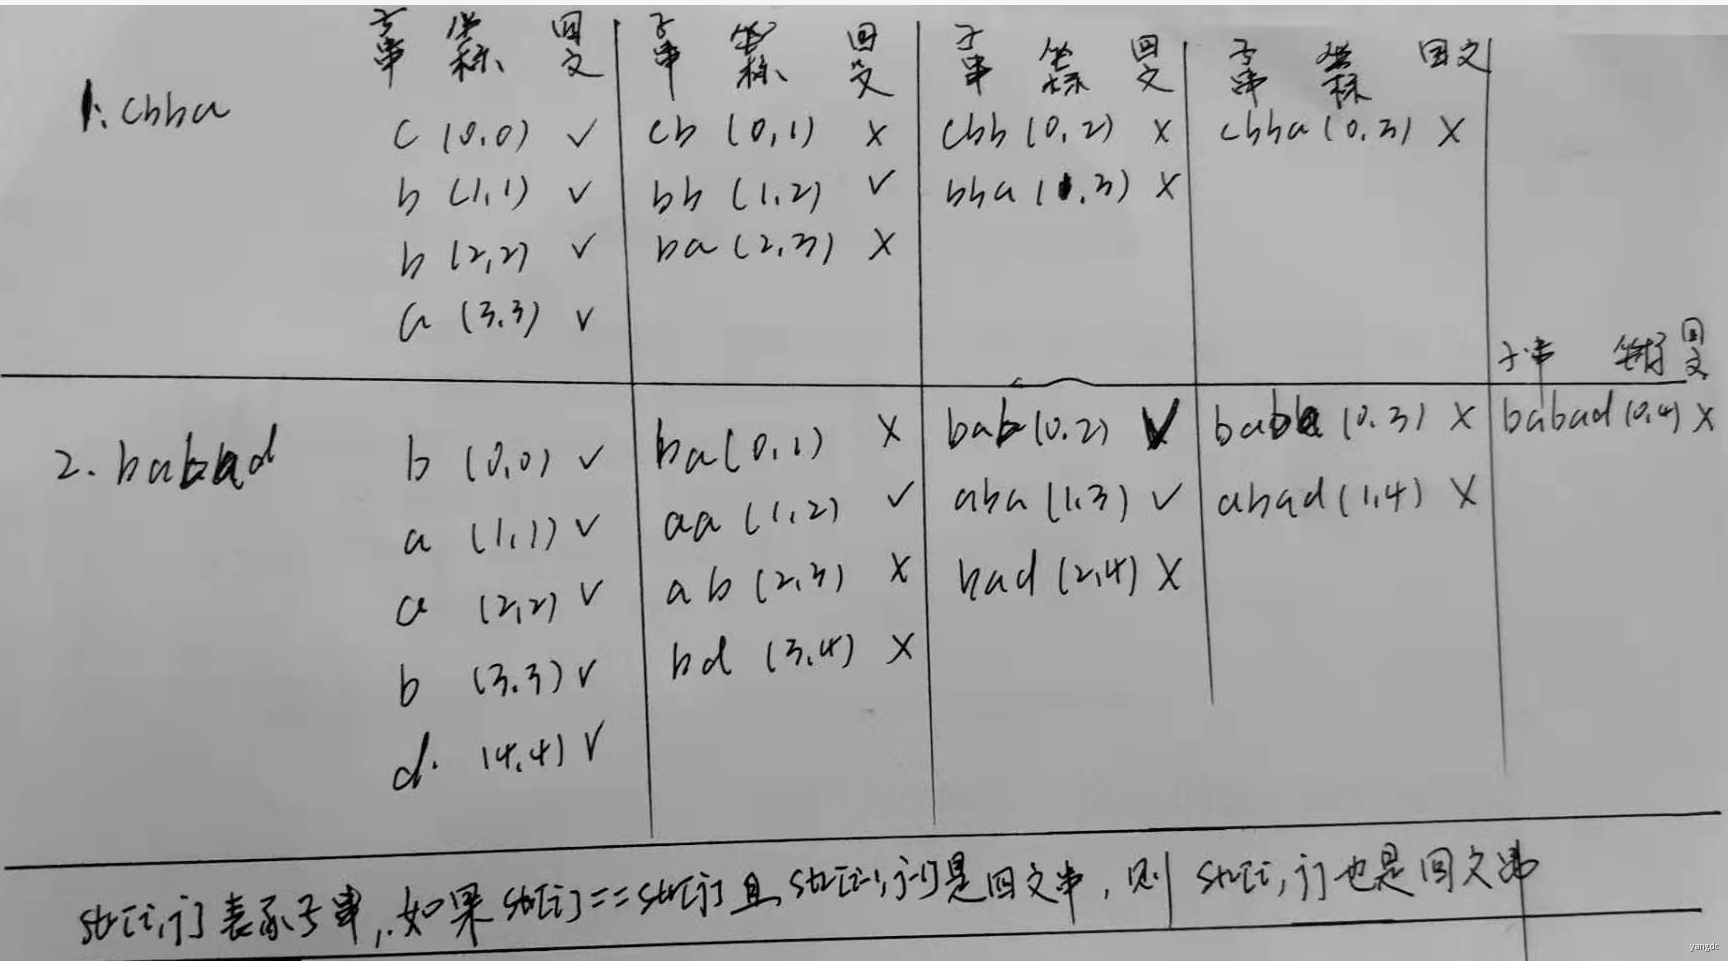 子串 坐标 回文 子串 坐标 回文 子串 坐标 回文 子串 坐标 回文
1. cbba
c (0,0) ✓ cb (0,1) × cbb (0,2) × cbba (0,3) ×
b (1,1) ✓ bb (1,2) ✓ bba (1,3) ×
b (2,2) ✓ ba (2,3) ×
a (3,3) ✓
子串 坐标 回文
2. babad
b (0,0) ✓ ba (0,1) × bab (0,2) ✓ baba (0,3) × babad (0,4) ×
a (1,1) ✓ aa (1,2) ✓ aba (1,3) ✓ abad (1,4) ×
a (2,2) ✓ ab (2,3) × bad (2,4) ×
b (3,3) ✓ bd (3,4) ×
d. (4,4) ✓
str[i,j]表示子串,如果str[i]==str[j]且str[i-1,j-1]是回文串,则str[i,j]也是回文串
yangdc